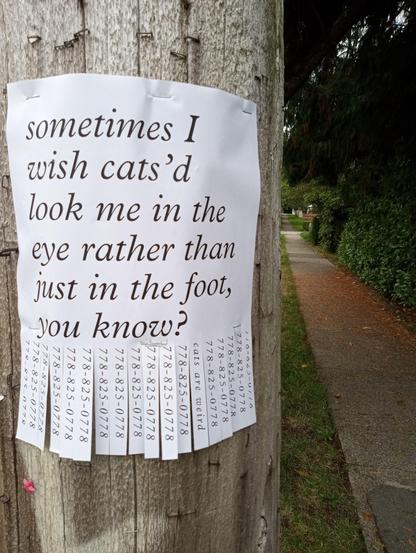 sometimes I
wish cats'd
look me in the
eye rather than
just in the foot,
you know?
778-825-0778
778-825-0778
778-825-0778
778-825-0778
778-825-0778
778-825-0778
778-825-0778
778-825-0778
778-825-0778
778-825-0778
778-825-0778
cats are weird
778-825-0778
778-825-0778
778-825-0778
778-825-0778